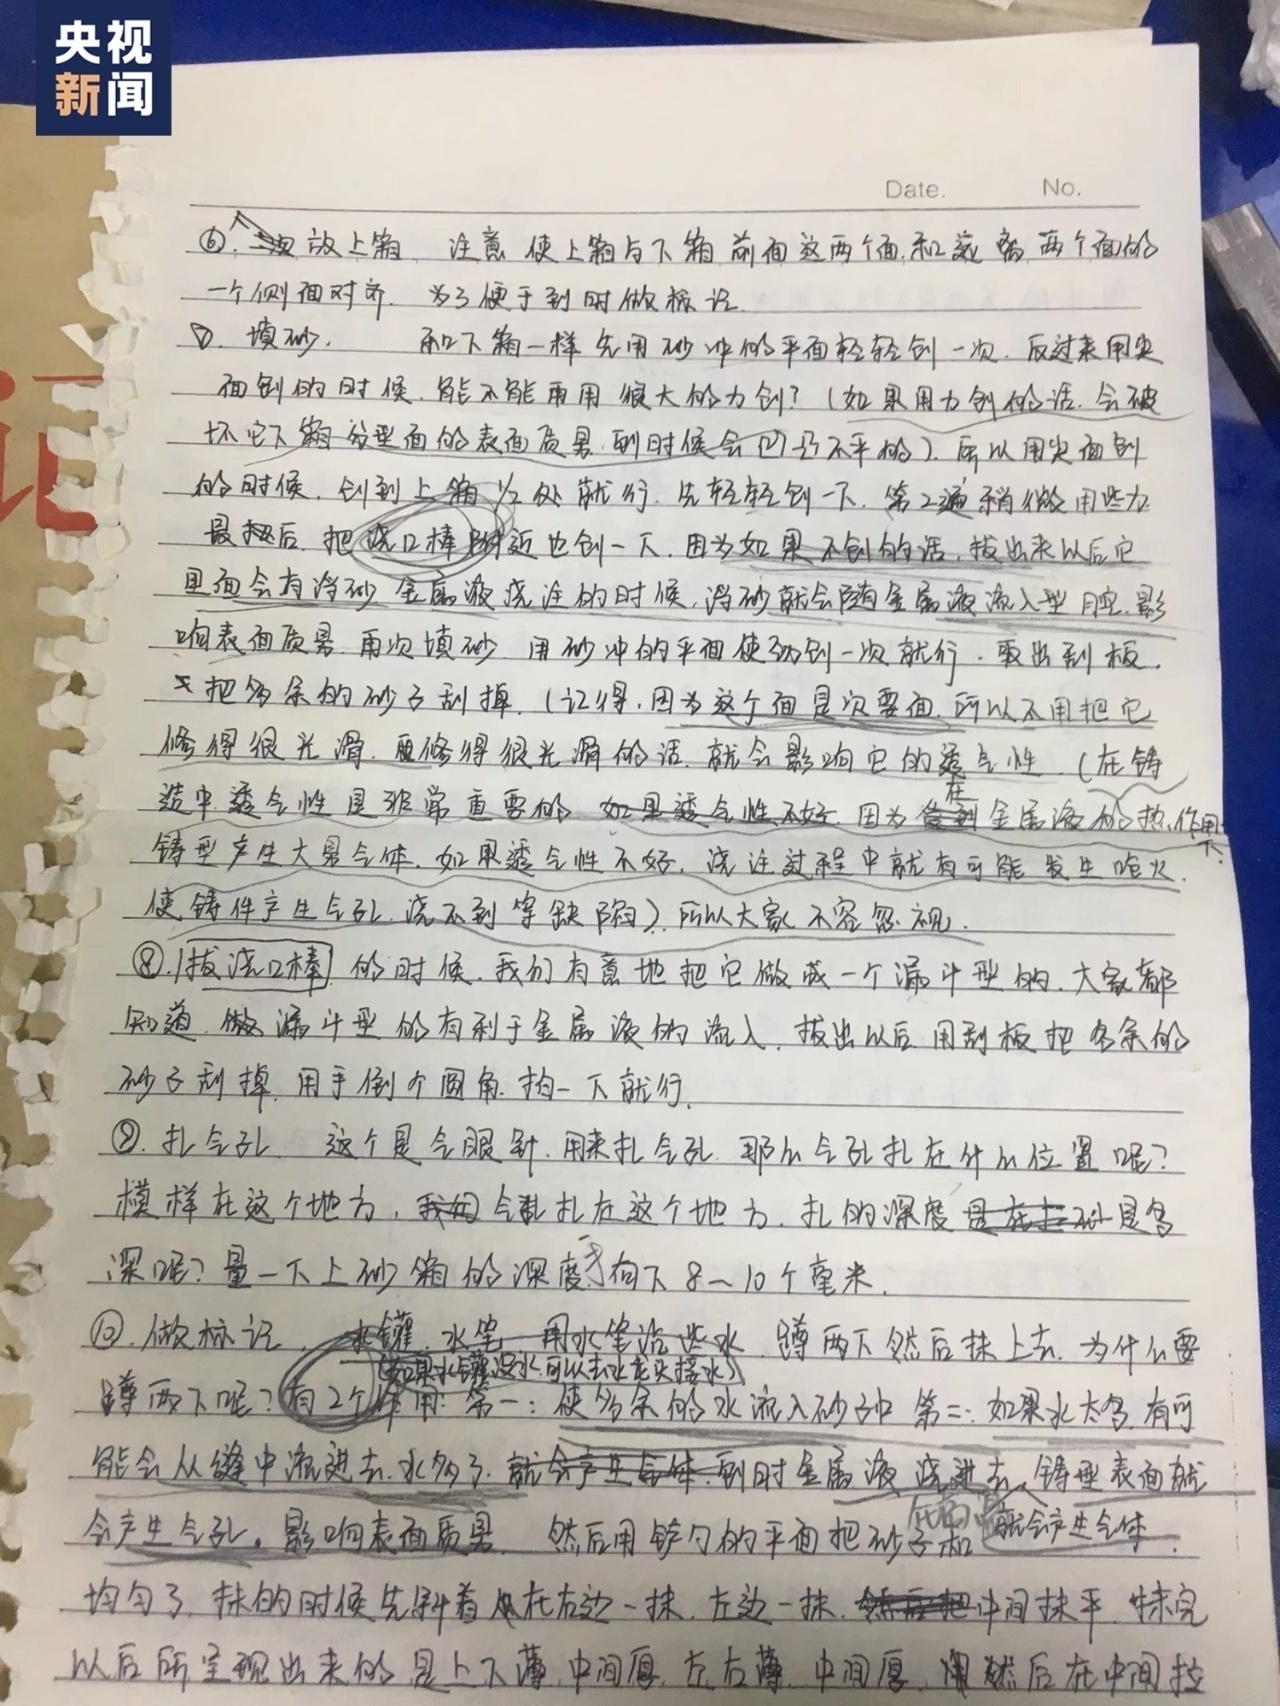 央视
新闻
Date.    No.
⑥. 放上箱. 注意 使上箱与下箱 前面这两个面.和远离 两个面的
一个侧面对齐. 为了便于到时做标记.
⑦. 填砂. 和下箱一样先用砂冲的平面轻轻创一次. 反过来用尖
面创的时候.能不能再用很大的力创?(如果用力创的话.会破
坏它下箱分型面的表面质量.到时候会凹凸不平的).所以用尖面创
的时候.创到上箱1/2处就行.先轻轻创一下.第2遍稍微用些力
最后.把浇口棒附近也创一下.因为如果不创的话.拔出来以后它
里面会有浮砂 金属液浇注的时候.浮砂就会随金属液流入型腔.影
响表面质量.再次填砂 用砂冲的平面使劲创一次就行.取出刮板.
把多余的砂子刮掉.(记得.因为这个面是次要面.所以不用把它
修得很光滑.修得很光滑的话.就会影响它的透气性.(在铸
造中.透气性是非常重要的 如果透气性不好.因为在金属液的热作用下
铸型产生大量气体.如果透气性不好.浇注过程中就有可能发生呛火.
使铸件产生气孔.浇不到等缺陷).所以大家不容忽视.
⑧.拔浇口棒 的时候.我们有意地把它做成一个漏斗型的.大家都
知道.做漏斗型的有利于金属液的流入.拔出以后用刮板把多余的
砂子刮掉.用手倒个圆角.拍一下就行.
⑨.扎气孔. 这个是气眼针.用来扎气孔.那么气孔扎在什么位置呢?
模样在这个地方. 气孔扎在这个地方.扎的深度 是多
深呢?量一下上砂箱的深度 向下8~10个毫米.
⑩.做标记. 水罐.水笔 用水笔沾些水.蹲两下然后抹上去.为什么要
(如果水罐没水.可以去水龙头接水)
蹲两下呢?有2个作用:第一:使多余的水流入砂子中 第二:如果水太多.有可
能会从缝中流进去.水多了 就会产生气体.到时金属液浇进去.铸型表面就
会产生气孔。影响表面质量. 然后用铲勺的平面把砂子和 就会产生气体.
均匀了.抹的时候先斜着 在右边一抹.左边一抹.中间抹平.抹完
以后所呈现出来的是上下薄.中间厚.左右薄.中间厚.然后在中间拉